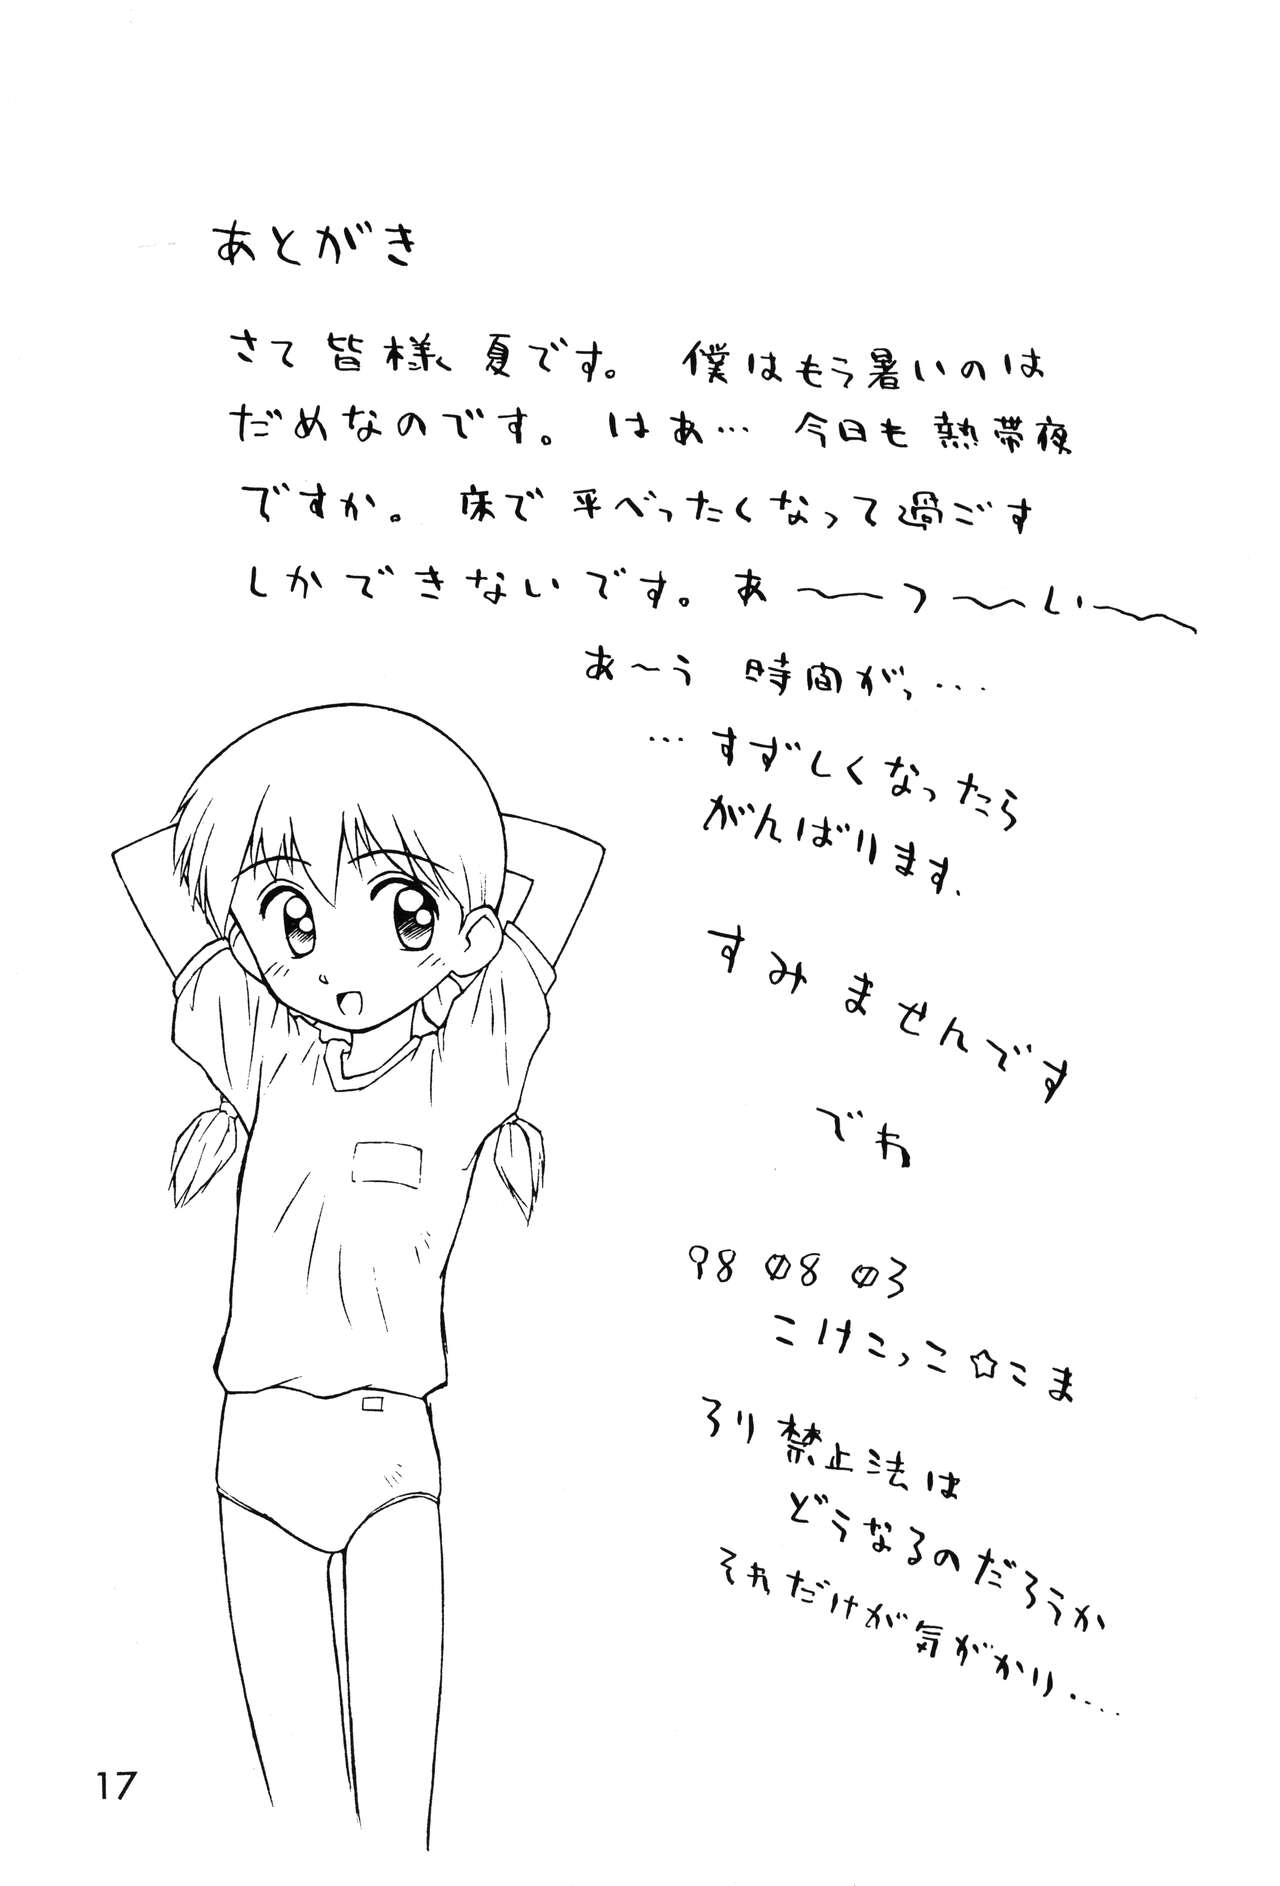 あとがき
さて皆様、夏です。 僕はもう暑いのは
だめなのです。 はぁ… 今日も熱帯夜
ですか。 床で平べったくなって過ごす
しかできないです。 あ〜〜つ〜〜い〜〜
あ〜う 時間がっ…
…すずしくなったら
がんばります.
すみませんです
でわ
98 08 03
こけこっこ☆こま
ろり禁止法は
どうなるのだろうか
それだけが気がかり.....
17